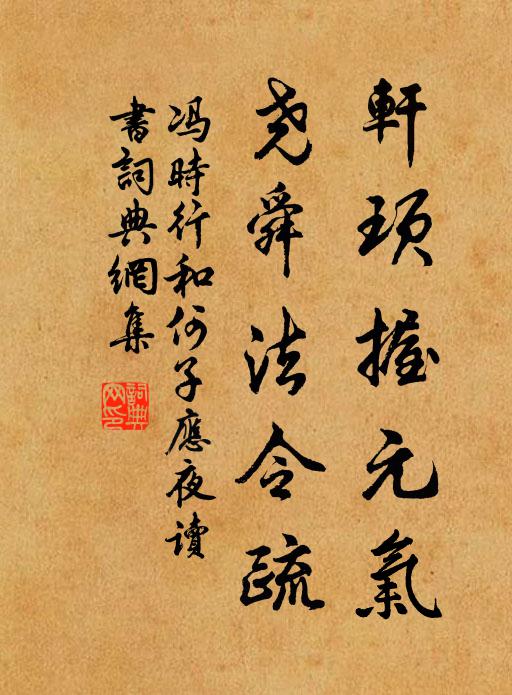 軒頊握元氣
尧舜法令疏
冯時行和何子應夜读
書詞典網集
詞典
网印